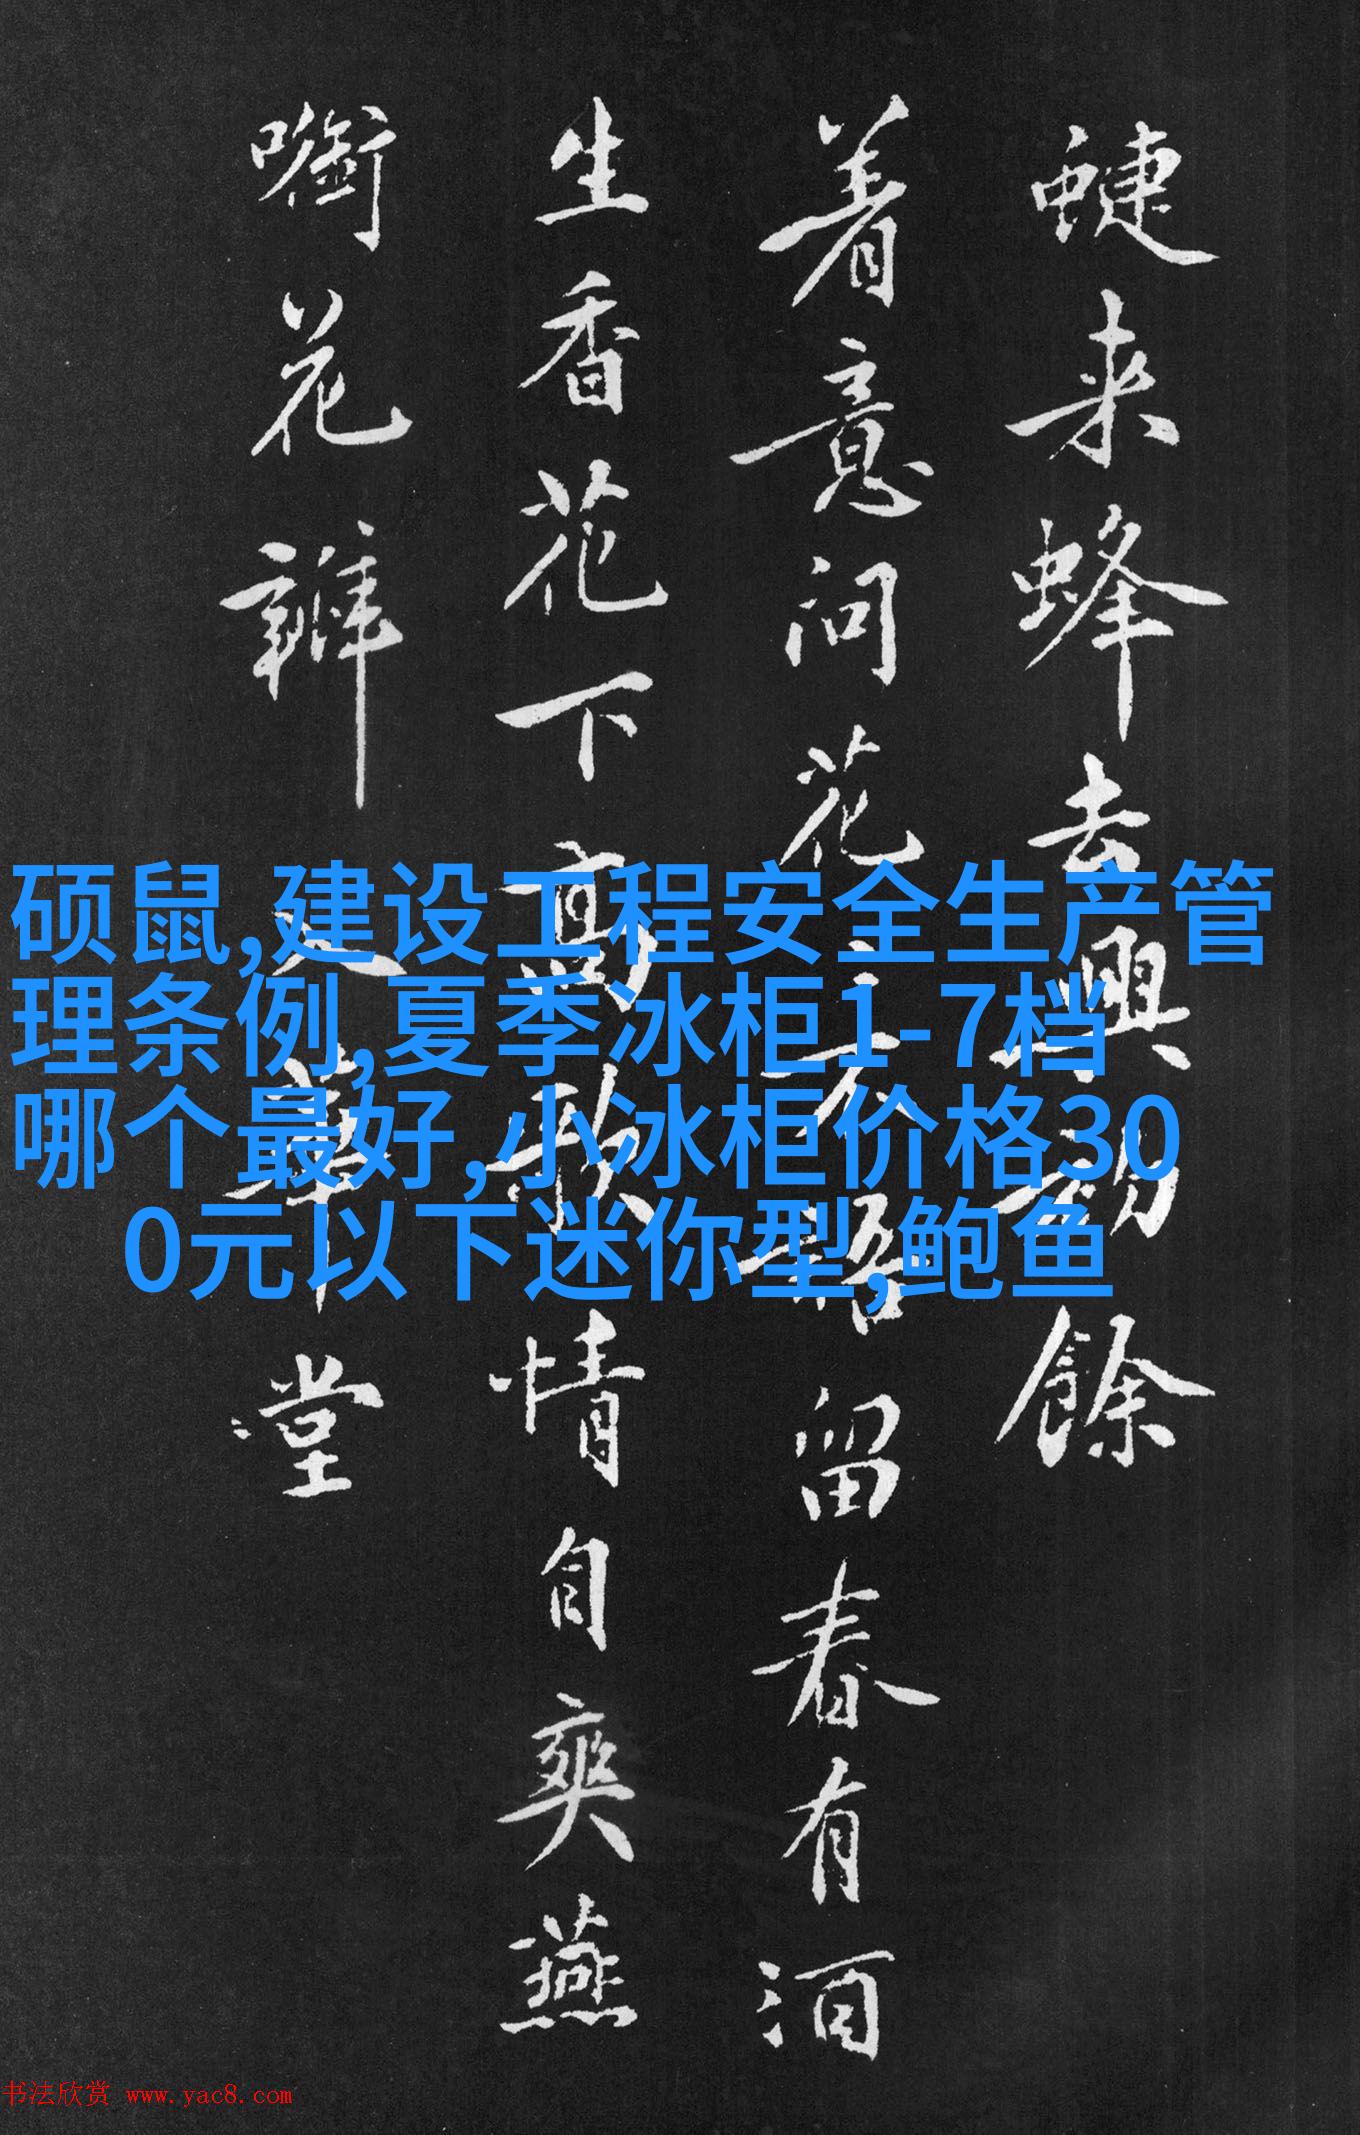 蜨来蜂去興初餘
着意问花花不語留春有酒
生香花下高歌情自爽燕
花瓣入華堂
硕鼠,建设工程安全生产管
理条例,夏季冰柜1-7档
哪个最好,小冰柜价格30
0元以下迷你型,鲍鱼
书法欣赏 www.yac8.com